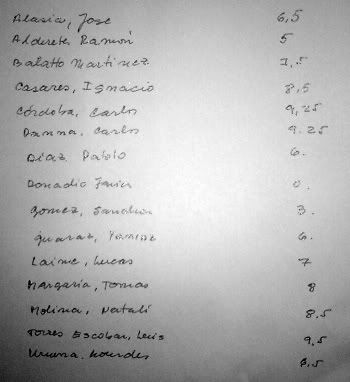 Alasia, Jose 6,5
Alderete Ramón 5
Balatto Martinez 1,5
Casares, Ignacio 8,5
Córdoba, Carlos 9,25
Danna, Carlos 9.25
Díaz Pablo 6.
Donadio Javier 0.
Gomez, 3.
6.
Laime, Lucas 7
Margaria, Tomas 8
Molina, Natalí 8,5
Torres Escobar, Luis 9,5
Lourdes 6,5